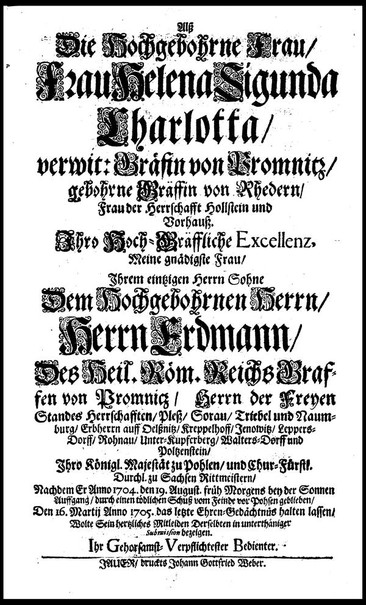 Alß
Die Hochgebohrne Frau/
Frau Helena Sigunda
Charlotta/
verwit: Gräfin von Promnitz/
gebohrne Gräffin von Rhedern/
Frau der Herrschafft Hollstein und
Vorhauß.
Ihro Hoch-Gräffliche Excellenz,
Meine gnädigste Frau/
Ihrem eintzigen Herrn Sohne
Dem Hochgebohrnen Herrn/
Herrn Erdmann/
Des Heil. Röm. Reichs Graf-
fen von Promnitz/ Herrn der Freyen
Standes Herrschafften/ Pleß/ Sorau/ Triebel und Naum-
burg/ Erbherrn auff Oelßnitz/ Kreppelhoff/ Jenowitz/ Leppers-
Dorff/ Rohnau/ Unter-Kupferberg/ Walters-Dorff und
Poltzenstein/
Ihro Königl. Majestät zu Pohlen/ und Chur-Fürstl.
Durchl. zu Sachsen Rittmeistern/
Nachdem Er Anno 1704. den 19. August. früh Morgens bey der Sonnen
Auffgang/ durch einen tödlichen Schuß vom Feinde vor Posen geblieben/
Den 16. Martij Anno 1705. das letzte Ehren-Gedächtnüs halten lassen/
Wolte Sein hertzliches Mitleiden Derselbten in unterthäniger
Submission bezeigen.
Ihr Gehorsamst-Verpflichtester Bedienter.
JAUER/ druckts Johann Gottfried Weber.